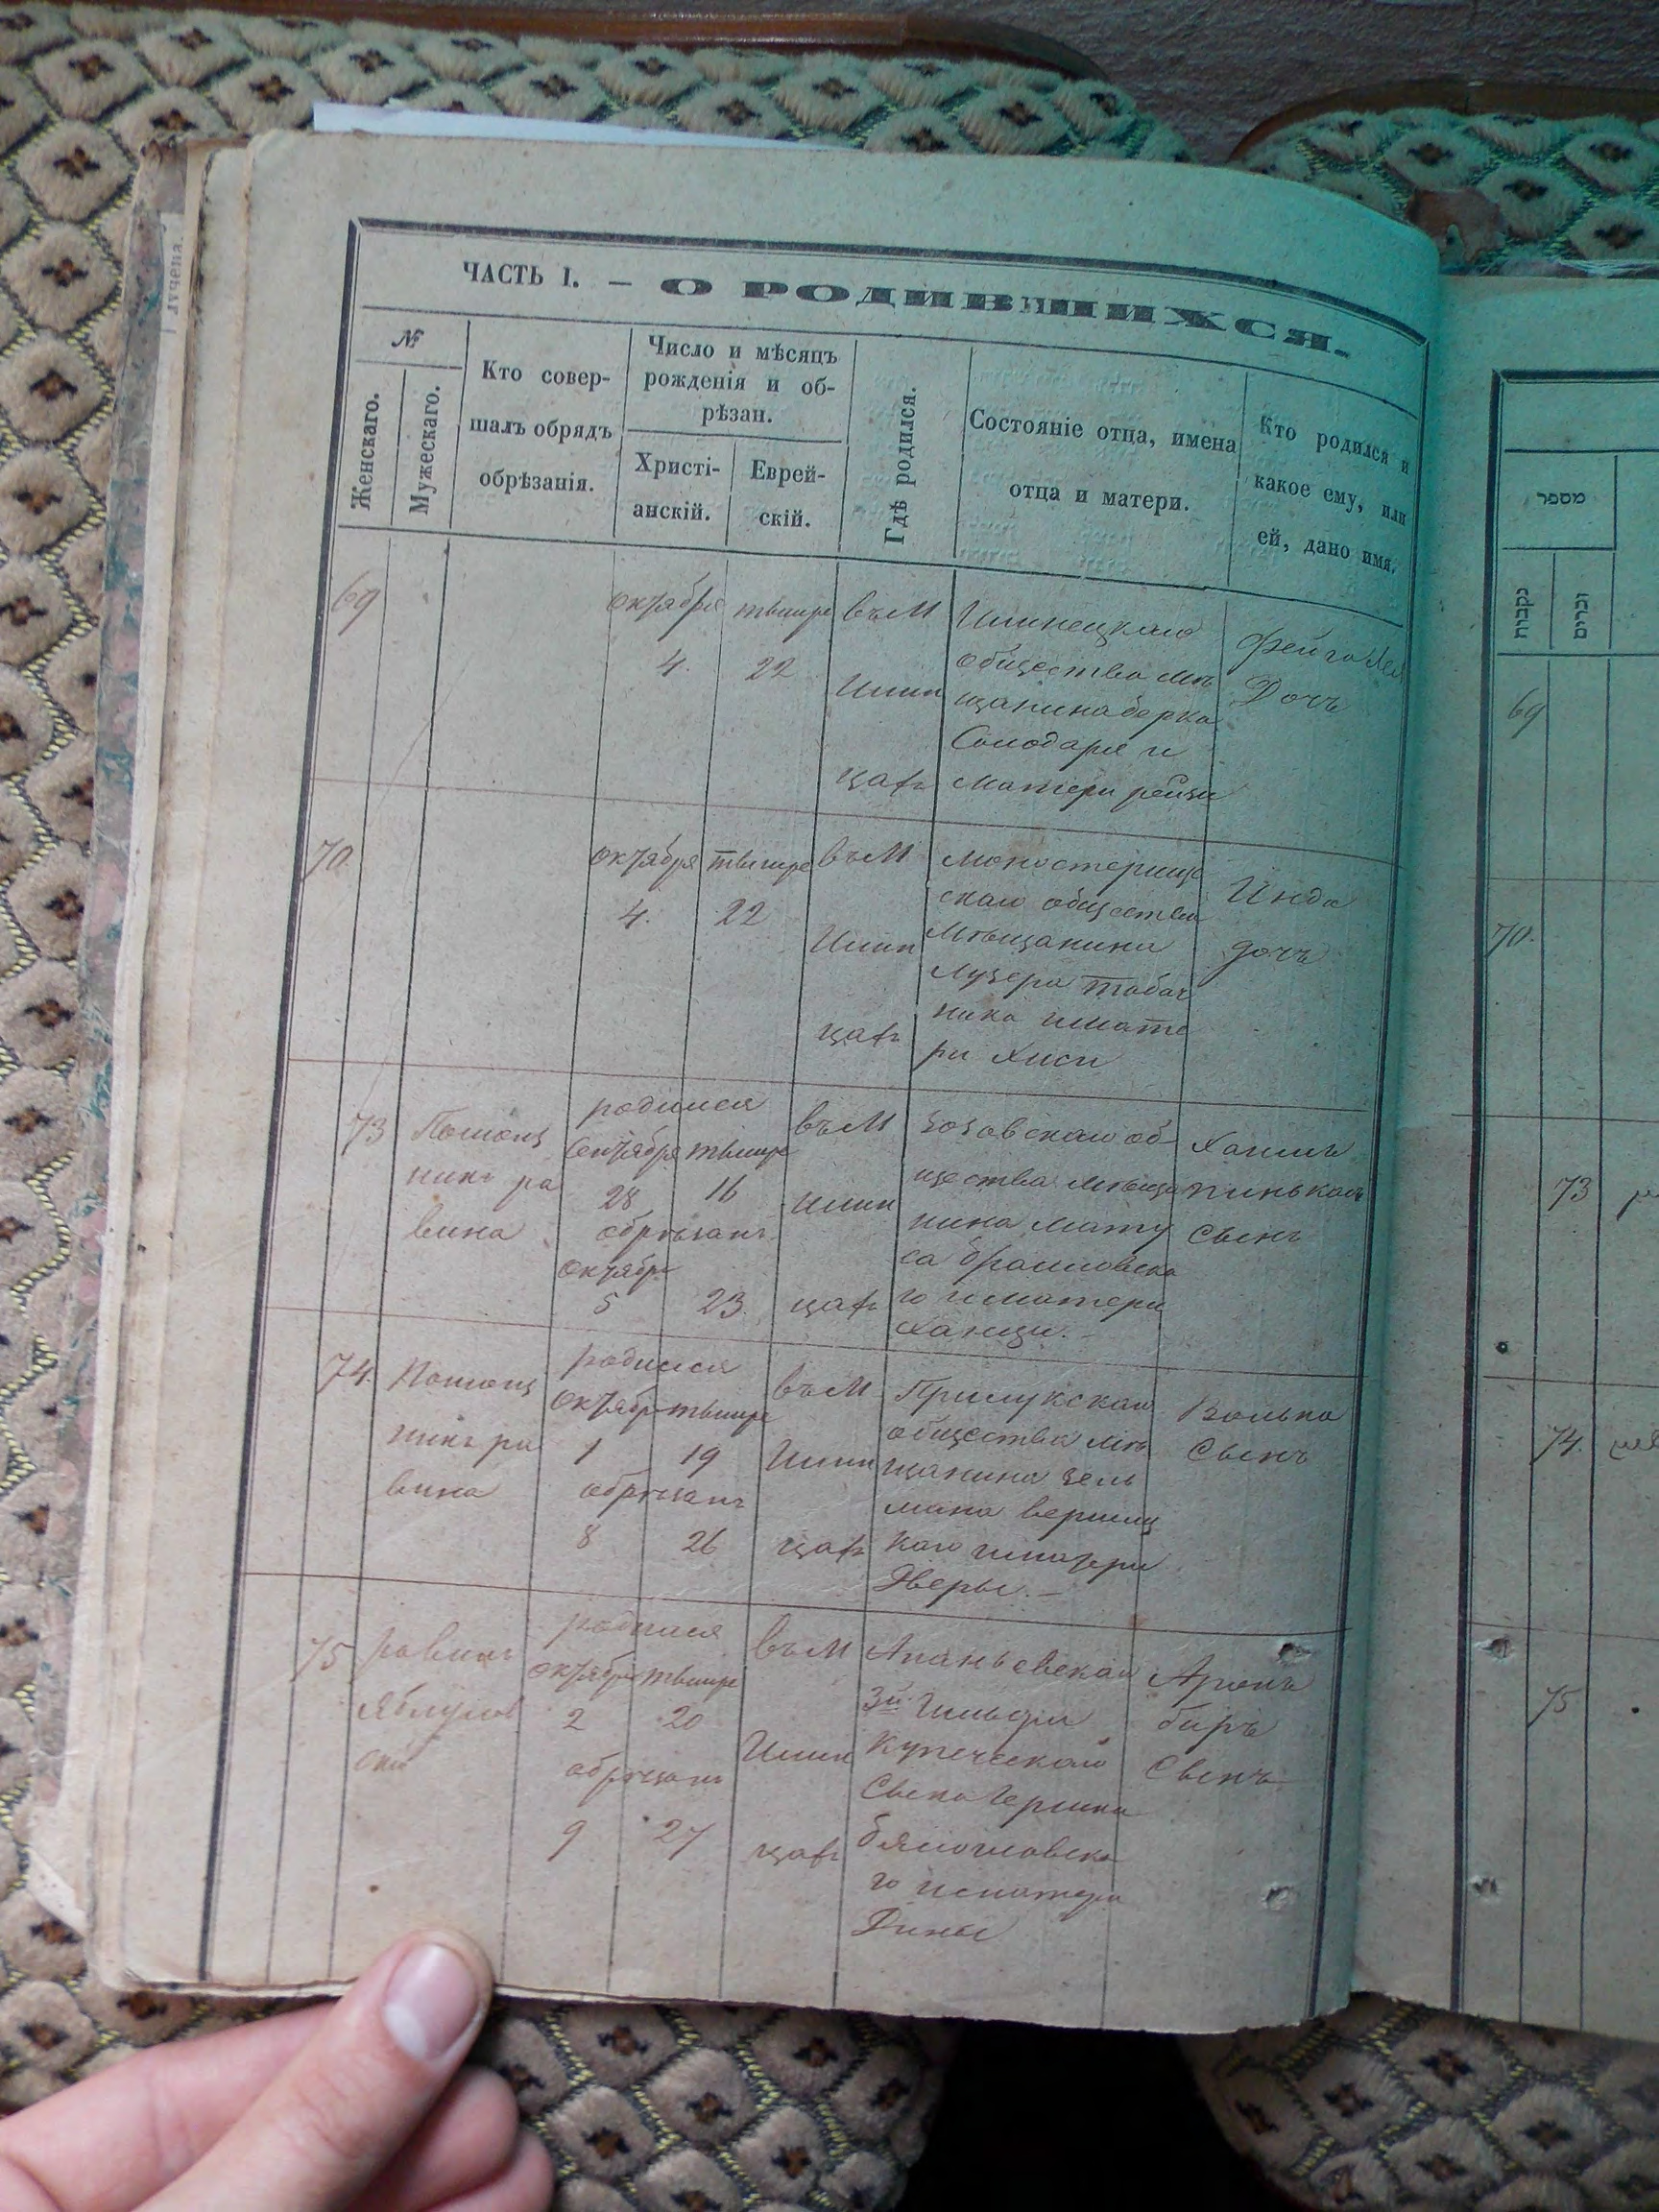 ЧАСТЬ I. – О РОДИВШИХСЯ.
№
Женскаго.
Мужескаго.
Кто совер-
шалъ обрядъ
обрѣзанія.
Число и мѣсяцъ
рожденія и об-
рѣзан.
Христі-
анскій.
Еврей-
скій.
Гдѣ родился.
Состояніе отца, имена
отца и матери.
Кто родился и
какое ему, или
ей, дано имя.
69
октября
4.
тишре
22
въ М
Илин
цахъ
Илинецкаго
общества мѣ
щанина Берка
Солодаря и
матери рейзи
Фейга Лея
Дочь
70.
октября
4.
тишре
22
въ М
Илин
цахъ
общества
Мѣщанина
Лузера Табач
ника имате
ри Хиси
Инда
дочь
73
Помощ
никъ ра
вина
родился
Сентября тишре
28 16
обрѣзанъ
октября
5 23.
въ М
Илин
цахъ
Зозовскаго об
щества мѣща
нина Мату
са Браиловска
го иматери
Ханци.
Хаимъ
пинькасъ
Сынъ
74.
Помощ
никъ ра
вина
родился
октябр тишре
1 19
обрѣзанъ
8 26
въ М
Илин
цахъ
Прилукскаго
общества мѣ
щанина Зель
мана
каго иматери
Дверы.
Волько
Сынъ
75
равинъ
Яблунов
ski
родился
октября тишре
2 20
обрѣзанъ
9 27
въ М
Илин
цахъ
Ананьевскаго
3й Гильдіи
Купеческаго
Сына Гершка
го иматери
Дины
Аронъ
беръ
Сынъ
מספר
נקבות
זכרים
69
70.
73
74.
75